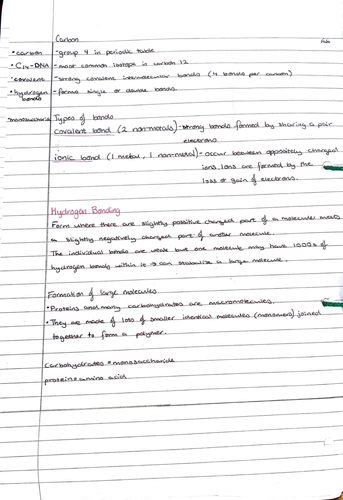 Carbon
• carbon
- group 4 in periodic table
• C14-DNA
- most common isotope is carbon 12
• covalent
- strong covalent intermolecular bonds (4 bonds per carbon)
• hydrogen bonds
- forms single or double bonds.
• monosaccharide
Types of bonds
Covalent bond (2 non-metals) - strong bonds formed by sharing a pair
electrons
ionic bond (1 metal, 1 non-metal) - occur between oppositely charged
ions. Ions are formed by the
loss or gain of electrons.
Hydrogen Bonding
Form where there are slightly possitive charged part of a molecule meets
a slightly negatively charged part of another molecule.
The individual bonds are weak but one molecule may have 1000s of
hydrogen bonds within it → can stabalise a large molecule.
Formation of large molecules
• Proteins and many carbohydrates are macromolecules.
• They are made of lots of smaller identical molecules (monomers) joined
together to form a polymer.
carbohydrates = monosaccharide
proteins = amino acid